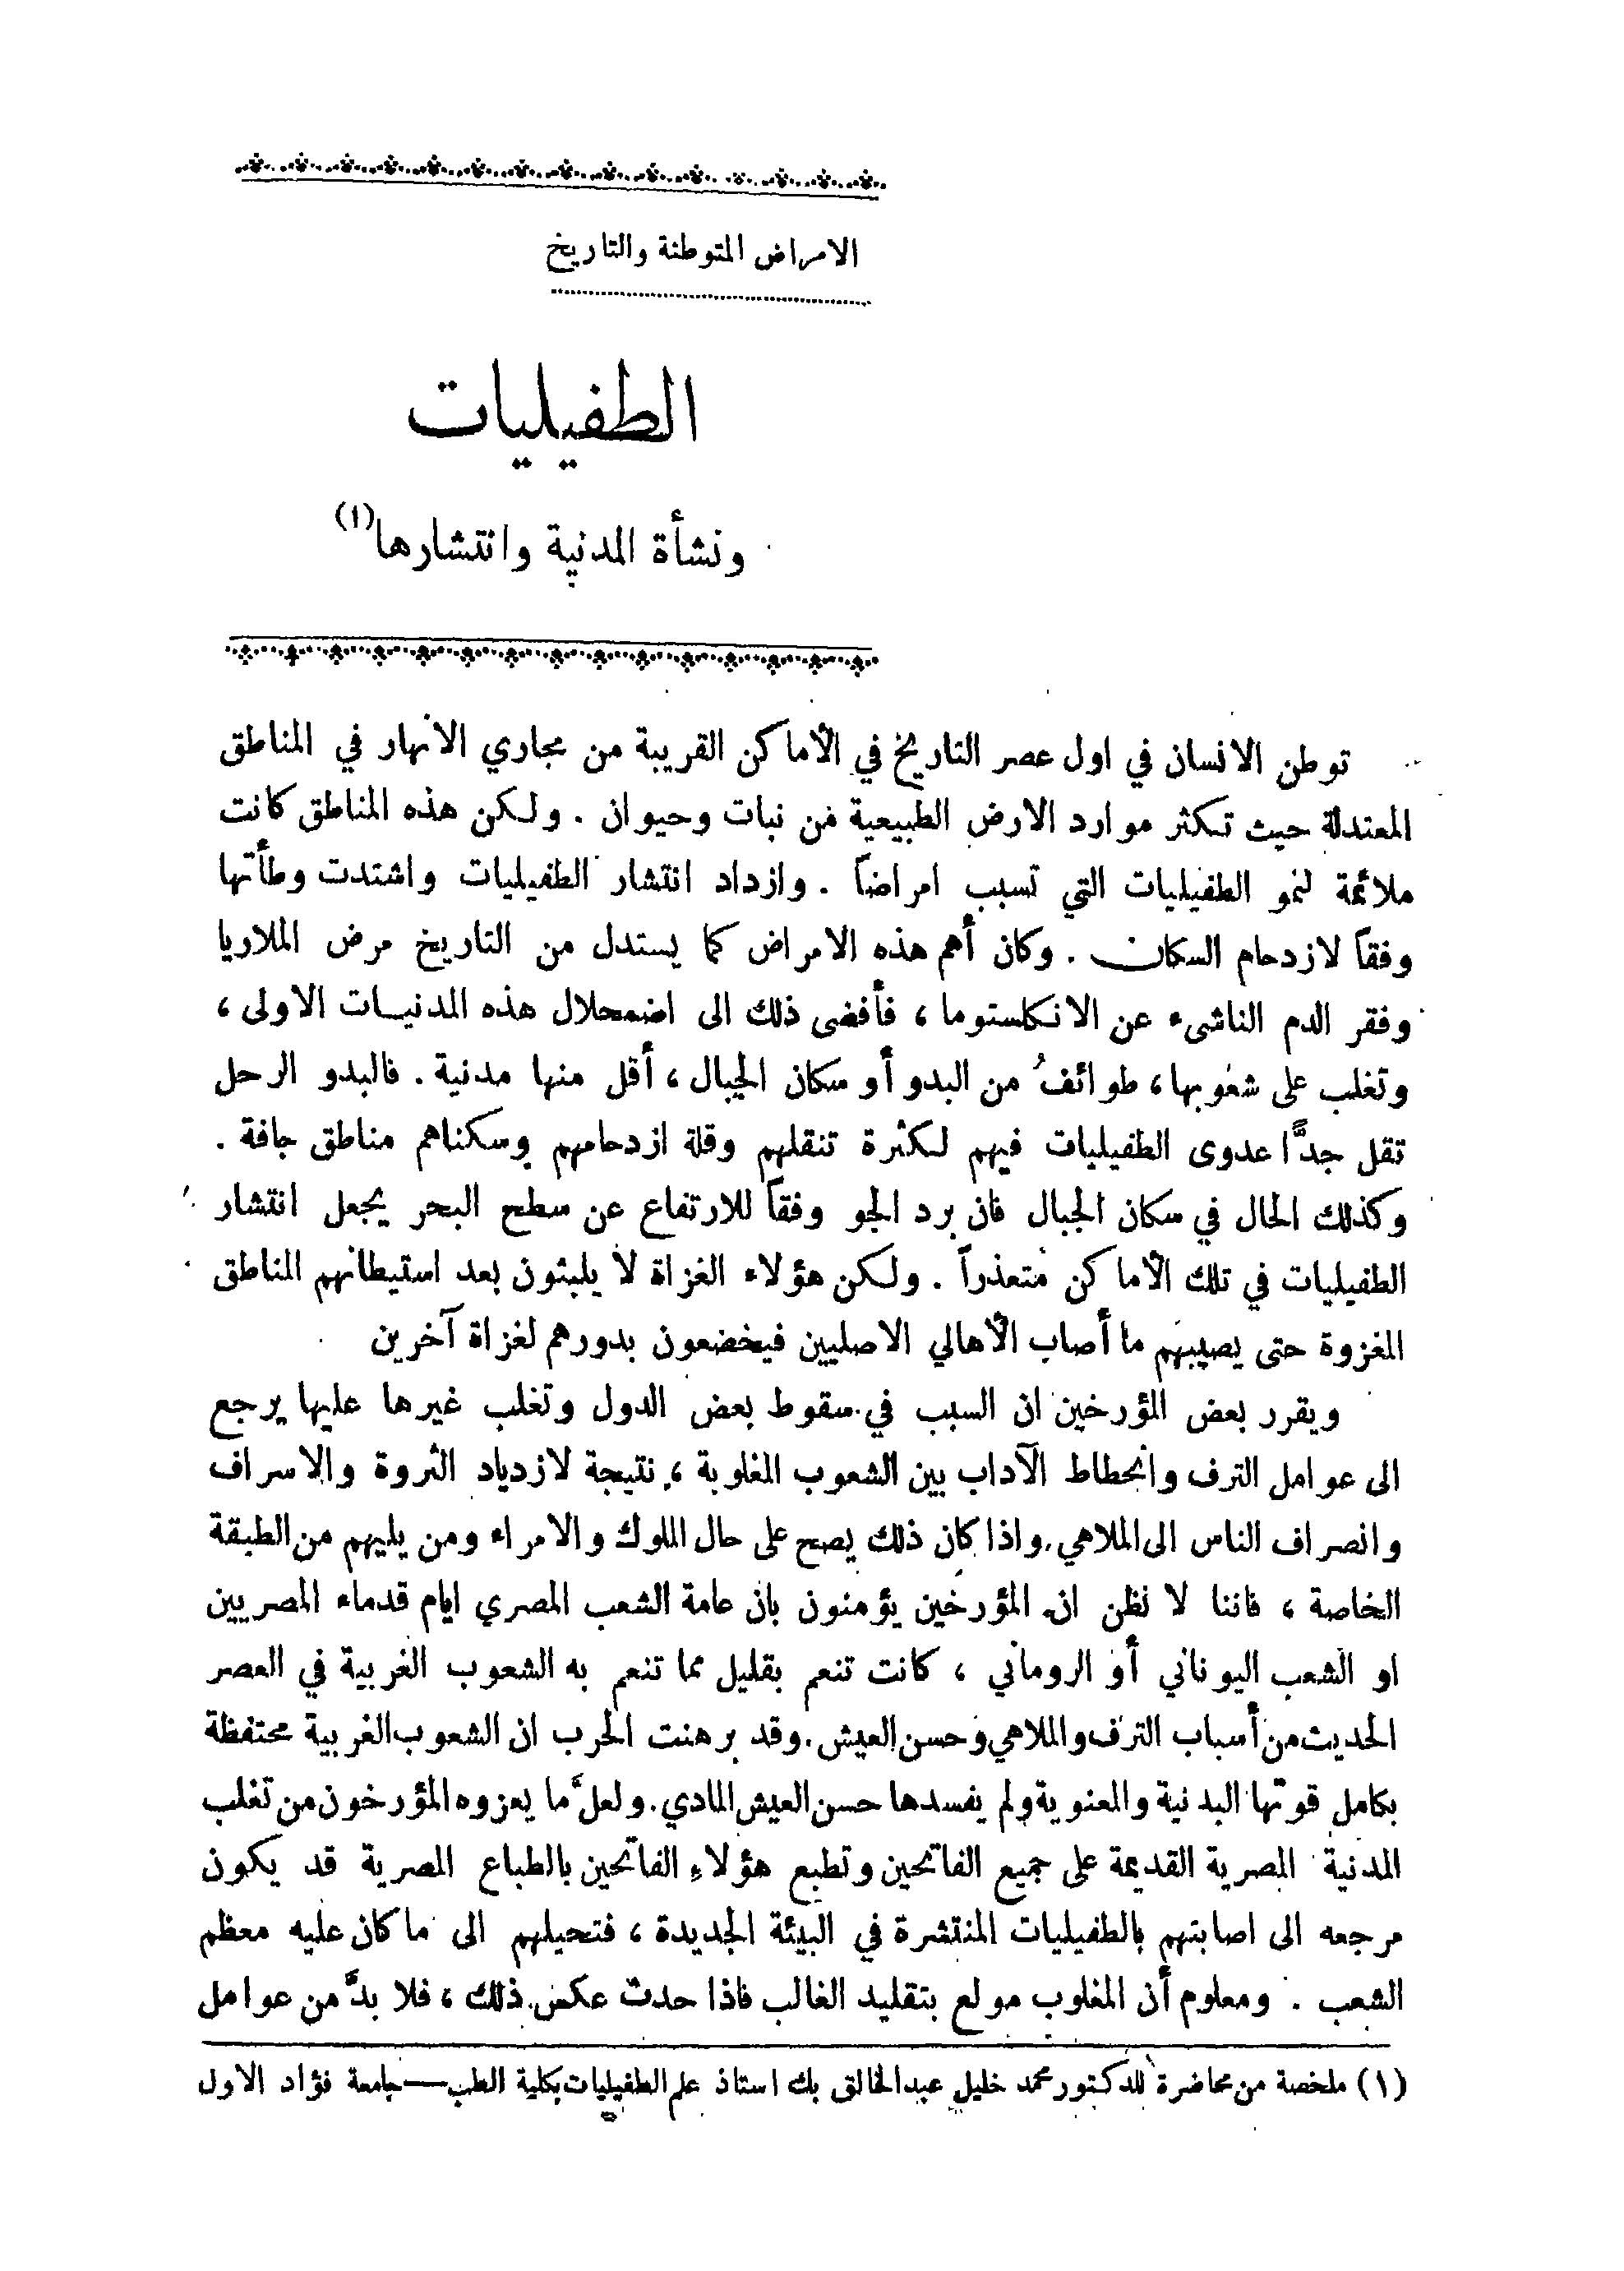 الامراض المتوطنة والتاريخ
الطفيليات
ونشأة المدنية وانتشارها (١)
توطن الانسان في اول عصر التاريخ في الأماكن القريبة من مجاري الانهار في المناطق
المعتدلة حيث تكثر موارد الارض الطبيعية من نبات وحيوان . ولكن هذه المناطق كانت
ملائمة لنمو الطفيليات التي تسبب امراضاً . وازداد انتشار الطفيليات واشتدت وطأتها
وفقاً لازدحام السكان . وكان أهم هذه الامراض كما يستدل من التاريخ مرض الملاريا
وفقر الدم الناشىء عن الانكلستوما ، فأفضى ذلك الى اضمحلال هذه المدنيات الاولى ،
وتغلب على شعوبها ، طوائفُ من البدو أو سكان الجبال ، أقل منها مدنية . فالبدو الرحل
تقل جدًّا عدوى الطفيليات فيهم لكثرة تنقلهم وقلة ازدحامهم وسكناهم مناطق جافة .
وكذلك الحال في سكان الجبال فان برد الجو وفقاً للارتفاع عن سطح البحر يجعل انتشار
الطفيليات في تلك الأماكن متعذراً . ولكن هؤلاء الغزاة لا يلبثون بعد استيطانهم المناطق
المغزوة حتى يصيبهم ما أصاب الأهالي الاصليين فيخضعون بدورهم لغزاة آخرين
ويقرر بعض المؤرخين ان السبب في سقوط بعض الدول وتغلب غيرها عليها يرجع
الى عوامل الترف وانحطاط الآداب بين الشعوب المغلوبة ، نتيجة لازدياد الثروة والاسراف
وانصراف الناس الى الملاهي . واذا كان ذلك يصح على حال الملوك والامراء ومن يليهم من الطبقة
الخاصة ، فاننا لا نظن ان المؤرخين يؤمنون بان عامة الشعب المصري ايام قدماء المصريين
او الشعب اليوناني أو الروماني ، كانت تنعم بقليل مما تنعم به الشعوب الغربية في العصر
الحديث من أسباب الترف والملاهي وحسن العيش . وقد برهنت الحرب ان الشعوب الغربية محتفظة
بكامل قوتها البدنية والمعنوية ولم يفسدها حسن العيش المادي . ولعلَّ ما يعزوه المؤرخون من تغلب
المدنية المصرية القديمة على جميع الفاتحين وتطبع هؤلاءِ الفاتحين بالطباع المصرية قد يكون
مرجعه الى اصابتهم بالطفيليات المنتشرة في البيئة الجديدة ، فتحيلهم الى ما كان عليه معظم
الشعب . ومعلوم أن المغلوب مولع بتقليد الغالب فاذا حدث عكس ذلك ، فلا بدَّ من عوامل
(١) ملخصة من محاضرة للدكتور محمد خليل عبد الخالق بك استاذ علم الطفيليات بكلية الطب — جامعة فؤاد الاول